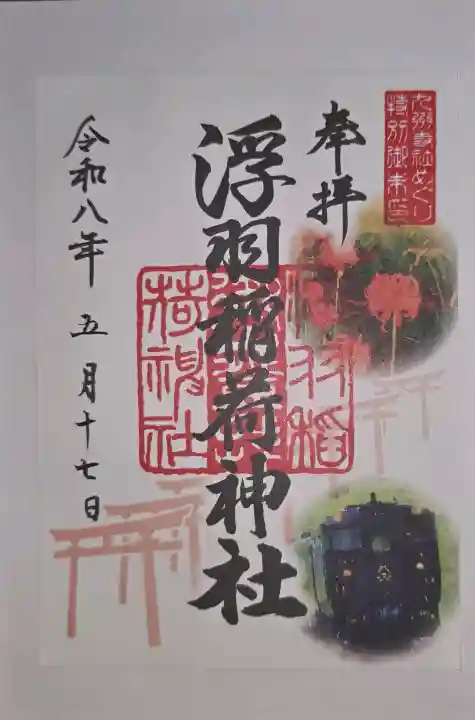 九州寺社めぐり
特別御朱印
奉拝
浮羽稲荷神社
令和八年 五月十七日